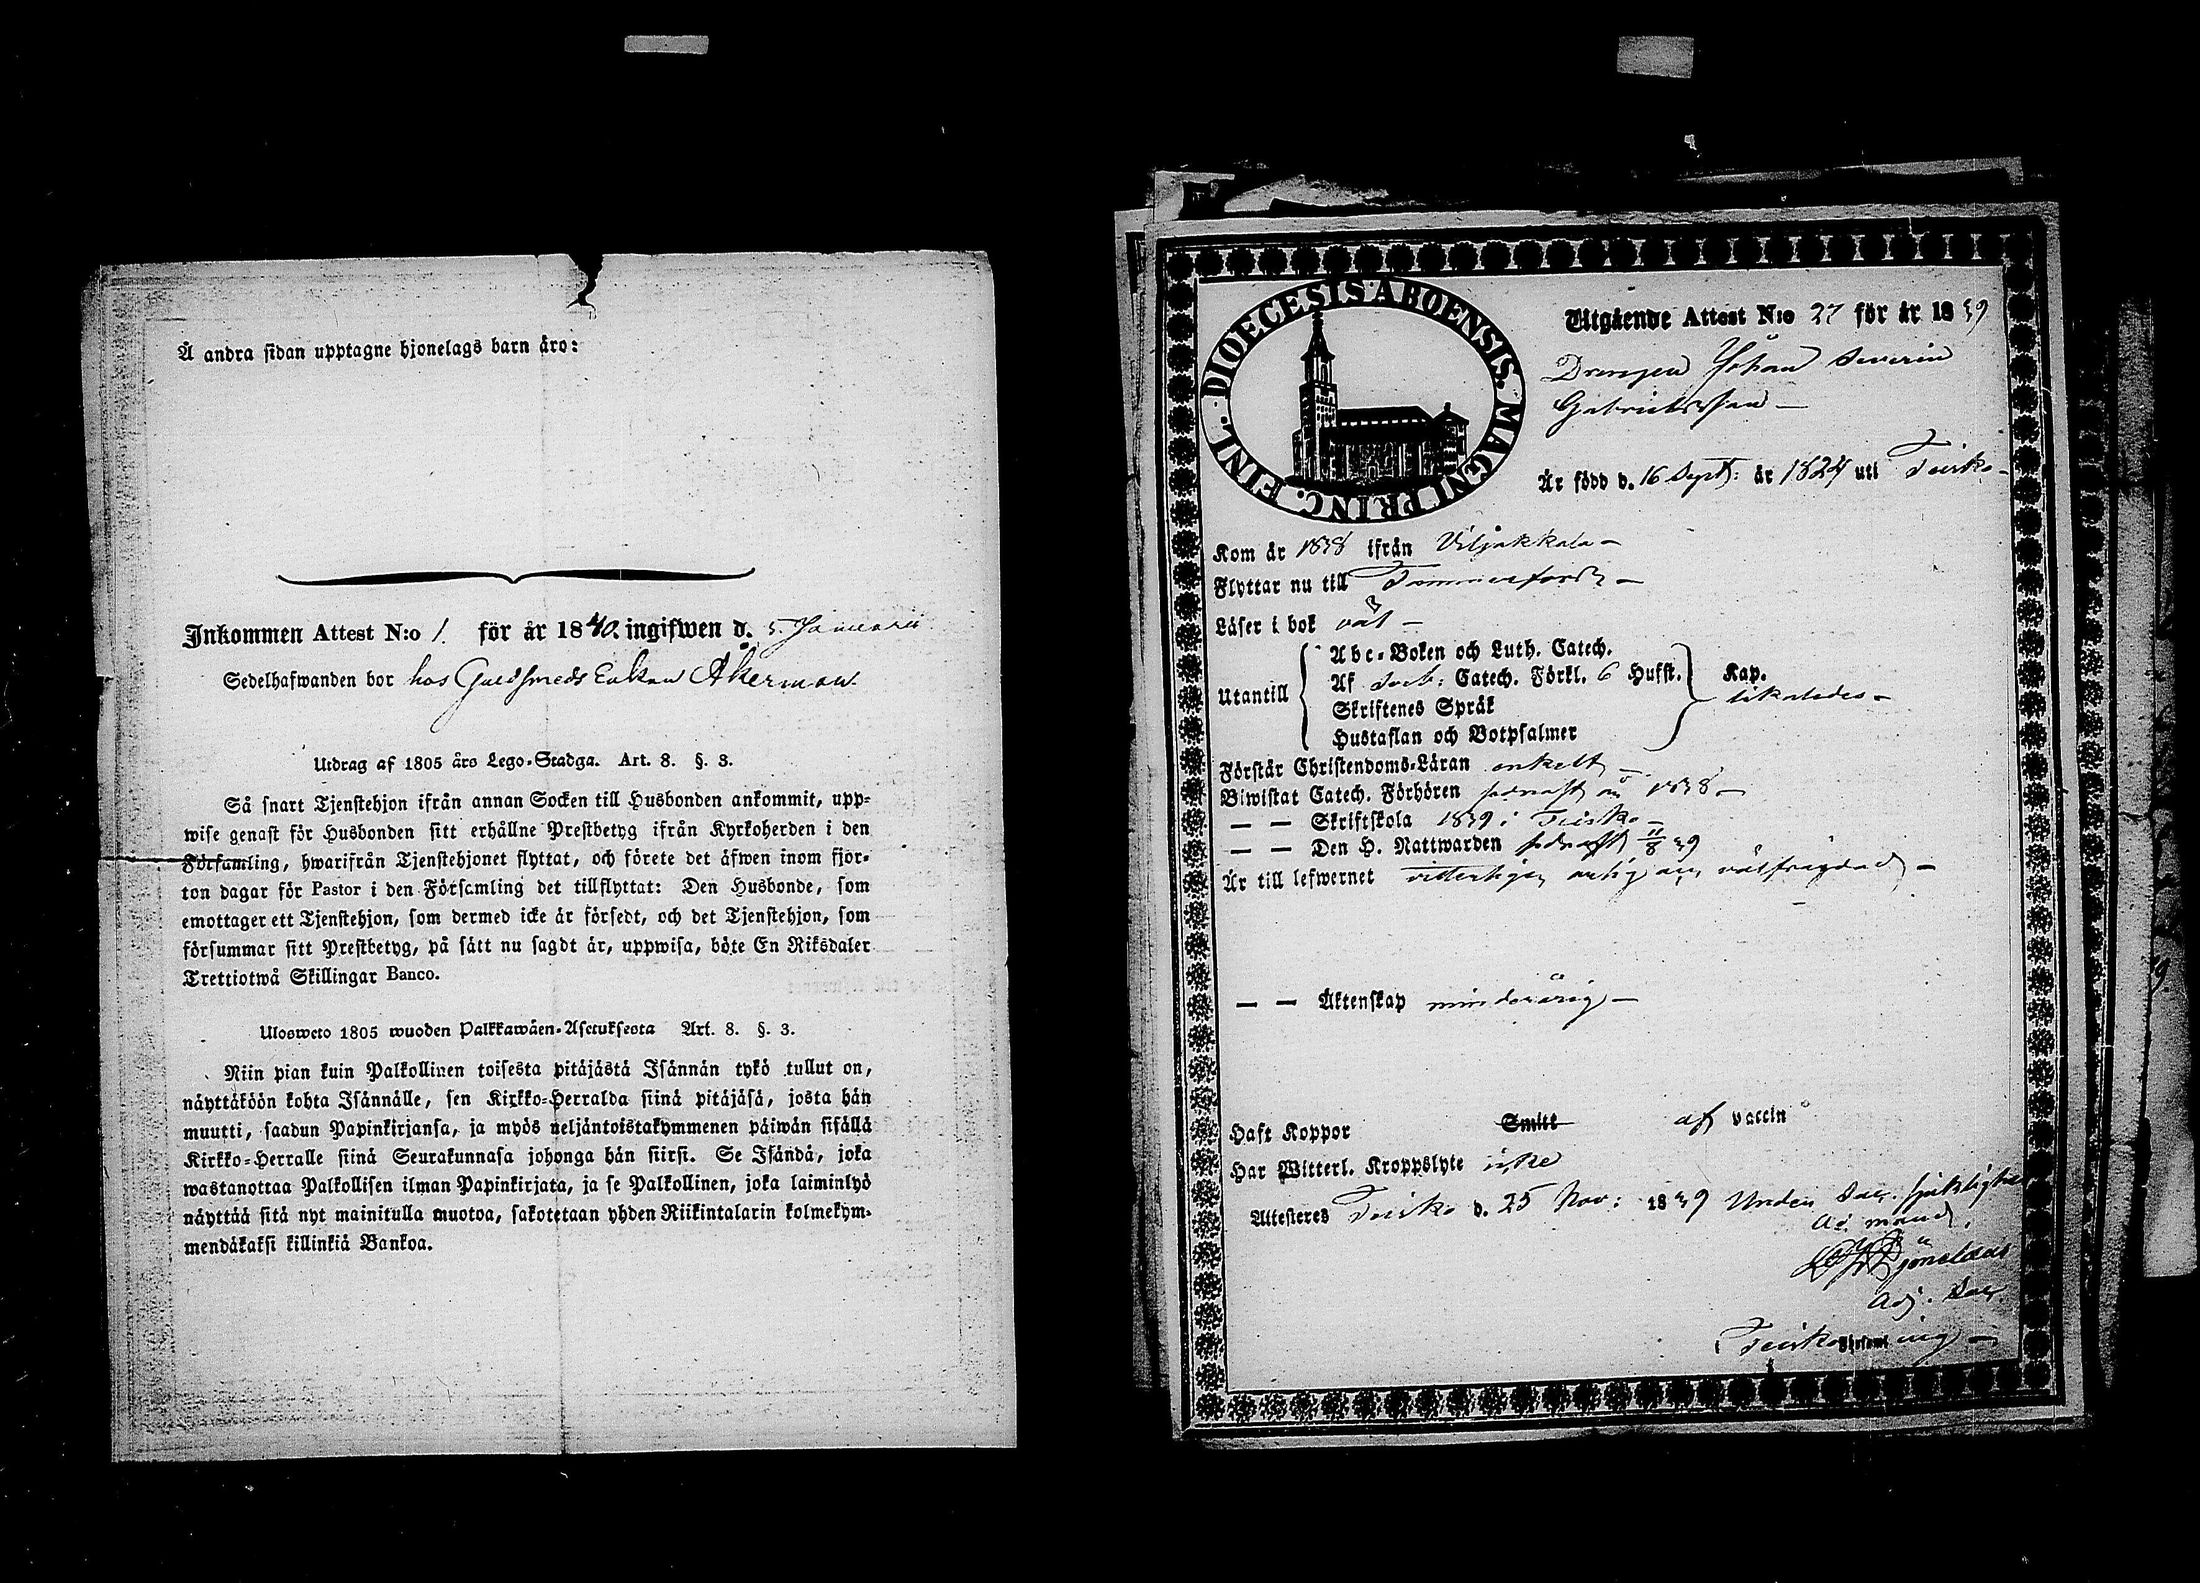 Å andra sidan upptagne hjonelags barn äro:
Inkommen Attest N:o 1. för år 1840. ingifwen d. 5. Januarii
Sedelhafwanden bor hos Guldsmeds Enkan Åkerman.
Utdrag af 1805 års Lego-Stadga. Art. 8. §. 3.
Så snart Tjenstehjon ifrån annan Socken till Husbonden ankommit, upp-
wise genast för Husbonden sitt erhållne Prestbetyg ifrån Kyrkoherden i den
Församling, hwarifrån Tjenstehjonet flyttat, och förete det äfwen inom fjor-
ton dagar för Pastor i den Församling det tillflyttat: Den Husbonde, som
emottager ett Tjenstehjon, som dermed icke är försedt, och det Tjenstehjon, som
försummar sitt Prestbetyg, på sätt nu sagdt är, uppwisa, böte En Riksdaler
Trettiotwå Skillingar Banco.
Ulosweto 1805 wuoden Palkkawäen-Asetuksesta Art. 8. §. 3.
Niin pian kuin Palkollinen toisesta pitäjästä Isännän tykö tullut on,
näyttäköön kohta Isännälle, sen Kirkko-Herralda siinä pitäjäsä, josta hän
muutti, saadun Papinkirjansa, ja myös neljäntoistakymmenen päiwän sisällä
Kirkko-Herralle siinä Seurakunnasa johonga hän siirsi. Se Isändä, joka
wastanottaa Palkollisen ilman Papinkirjata, ja se Palkollinen, joka laiminlyö
näyttää sitä nyt mainitulla muotoa, sakotetaan yhden Riikintalarin kolmekym-
mendäkaksi killinkiä Bankoa.
DIOECESIS ABOENSIS. MAGNI PRINC. FINL.
Utgående Attest N:o 27 för år 1839
Drengen Johan Severin
Gabrielsson
Är född d. 16 Sept: år 1824 uti Teisko
Kom år 1838 ifrån Viljakkala
Flyttar nu till Tammerfors
Läser i bok väl
Utantill
Abc-Boken och Luth. Catech.
Af Sveb: Catech. Förkl. 6 Hufst. Kap.
Skriftenes Språk
Hustaflan och Botpsalmer
likaledes
Förstår Christendoms-Läran enkelt
Biwistat Catech. Förhören sednast år 1838
— — Skriftskola 1839 i Teisko
— — Den H. Nattwarden sednast 11/8 39
Är till lefwernet vitterligen ärlig och välfrägdad
— — Äktenskap minderårig
Haft Koppor Smitt af vaccin
Har Witterl. Kroppslyte icke
Attesteres Teisko d. 25 Nov: 1839 Under Sac.
ad mand.
Adj. Sac
Teisko Församling